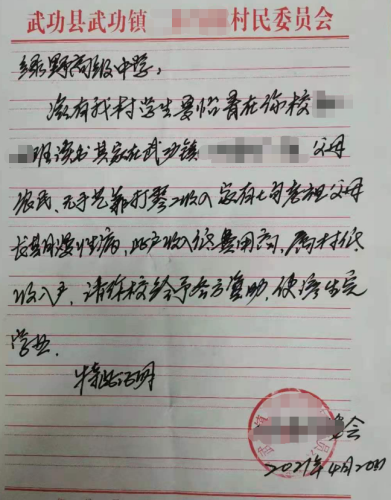 武功县武功镇 村民委员会
绿野高级中学：
兹有我村学生 在你校
班读书其家在武功镇 父母
农民、无手艺靠打零工收入 家有七旬老祖父母
长期慢性病，此户收入低费用高，属村低
收入户，请你校给予各方资助，使该生完
学业。
特此证明
委会
2021年4月20日